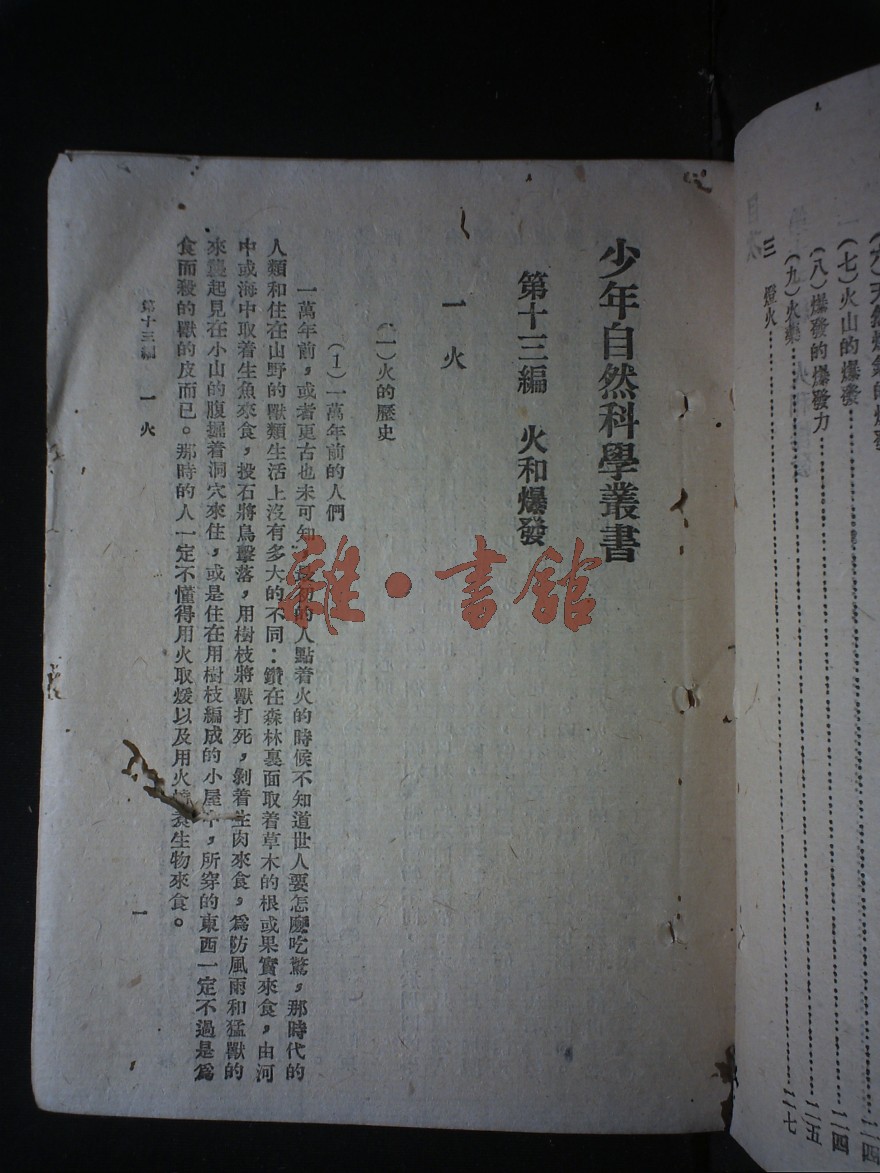 (七)火山的爆發…………二四
(八)爆發的爆發力…………二四
(九)火藥…………二五
三 燈火…………二七
少年自然科學叢書
第十三編 火和爆發
一 火
(一)火的歷史
(1)一萬年前的人們
一萬年前,或者更古也未可知,最初的人點着火的時候不知道世人要怎麼吃驚,那時代的
人類和住在山野的獸類生活上沒有多大的不同:鑽在森林裏面取着草木的根或果實來食,由河
中或海中取着生魚來食,投石將鳥擊落,用樹枝將獸打死,剝着生肉來食,爲防風雨和猛獸的
來襲起見在小山的腹掘着洞穴來住,或是住在用樹枝編成的小屋中,所穿的東西一定不過是爲
食而殺的獸的皮而已。那時的人一定不懂得用火取煖以及用火燒煮生物來食。
第十三編 一 火
一
雜·書館